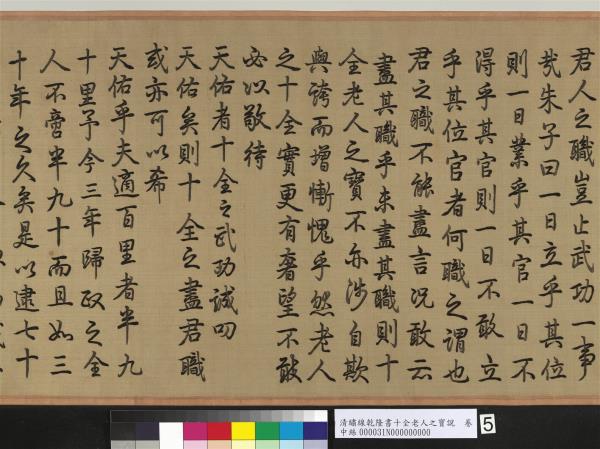 君人之職豈止武功一事
哉朱子曰一日立乎其位
則一日業乎其官一日不
得乎其官則一日不敢立
乎其位官者何職之謂也
君之職不能盡言況敢云
盡其職乎未盡其職則十
全老人之寶不亦涉自欺
與誇而增慚愧乎然老人
之十全實更有奢望不敢
必以敬待
天佑者十全之武功誠叨
天佑矣則十全之盡君職
或亦可以希
天佑乎夫適百里者半九
十里予今三年歸政之全
人不啻半九十而且如三
十年之久矣是以逮七十
清繡線乾隆書十全老人之寶說 卷
中絲 000031N000000000
5